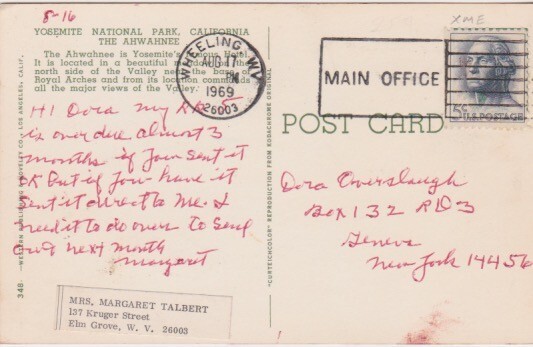 8-16
YOSEMITE NATIONAL PARK, CALIFORNIA
THE AHWAHNEE
The Ahwahnee is Yosemite's famous Hotel.
It is located in a beautiful garden on the
north side of the Valley near the base of
Royal Arches and from its location commands
all the major views of the Valley.
Hi Dora my RR
is over due almost 3
months if you sent it
OK But if you have it
sent it direct to Me. I
need it to do over to send
out next month
Margaret
MRS. MARGARET TALBERT
137 Kruger Street
Elm Grove, W. V. 26003
348
WESTERN PUBLISHING & NOVELTY CO., LOS ANGELES, CALIF.
"CURTEICHCOLOR" REPRODUCTION FROM KODACHROME ORIGINAL
WHEELING, WV
AUG 17
1969
26003
MAIN OFFICE
XME
5¢ U.S. POSTAGE
POST CARD
Dora Overslaugh
Box 132 RD 3
Geneva
New York 14456